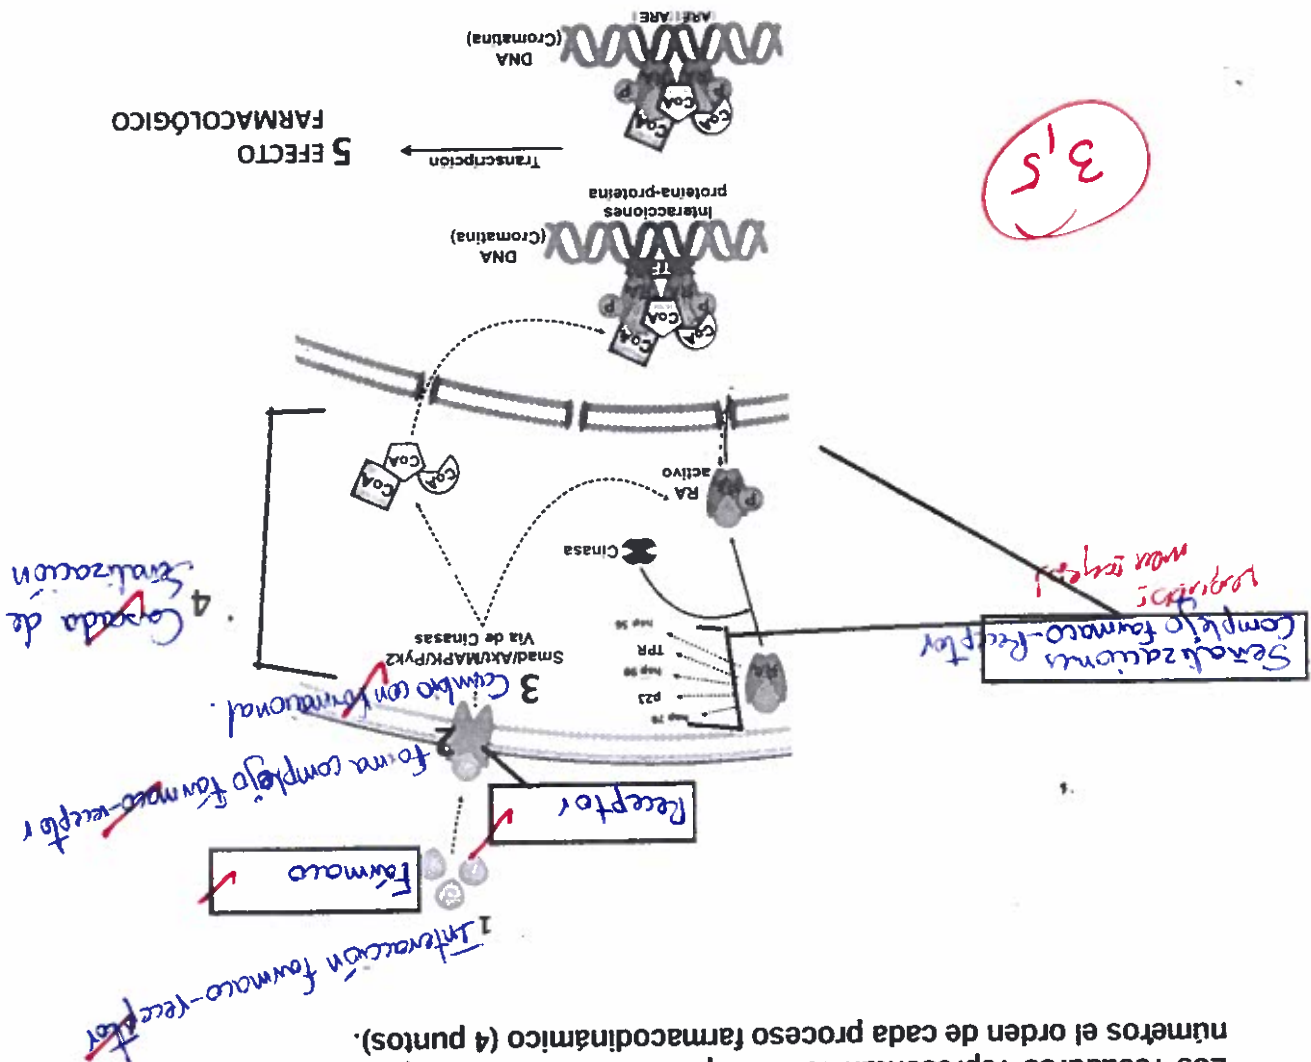 números el orden de cada proceso farmacodinámico (4 puntos).
1 Interacción farmaco-receptor
Fármaco
Receptor
2 forma complejo fármaco-receptor
3 Cambio conformacional.
Smad/Akt/MAPK/Pyk2
Vía de Cinasas
hsp 70
p23
hsp 90
TPR
hsp 56
RA
Señalizaciones
Complejo farmaco-receptor
4 Cascada de
Señalización
Cinasa
RA
activo
RA
P
CoA
CoA
CoA
CoA
CoA
CoA
P
P
RA
RA
TF
DNA
(Cromatina)
Interacciones
proteína-proteína
Transcripción
5 EFECTO
FARMACOLÓGICO
CoA
CoA
CoA
P
P
DNA
(Cromatina)
ARE ARE
3,5